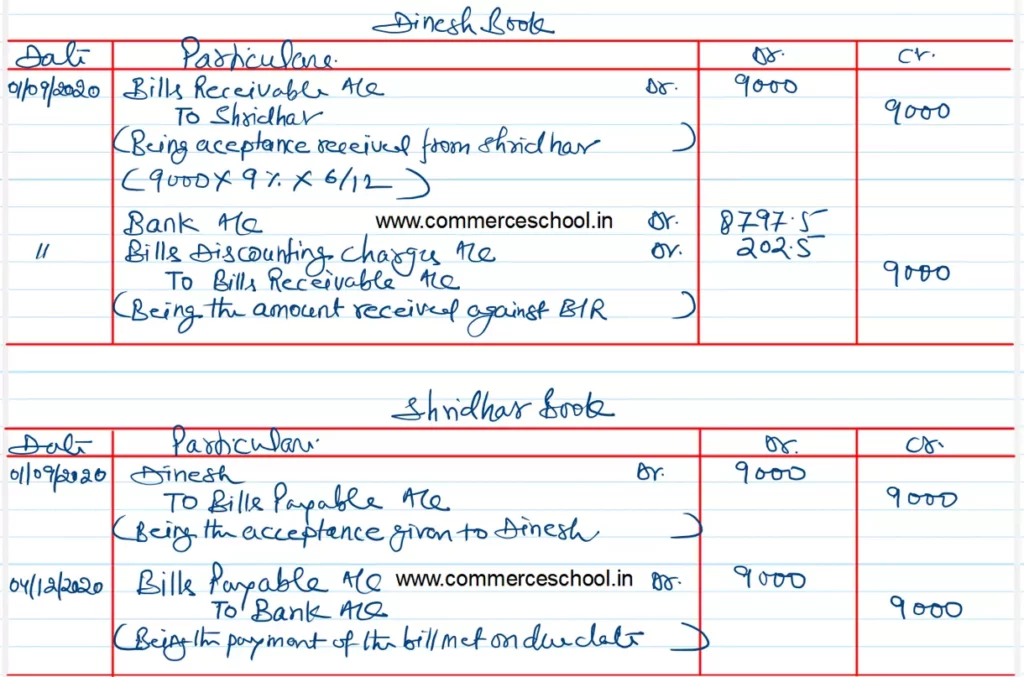 Dinesh Book
Date Particulars Dr. Cr.
01/09/2020 Bills Receivable A/c Dr. 9000
To Shridhar 9000
(Being aceptance received from Shridhar)
(9000 X 9% X 6/12)
Bank A/c www.commerceschool.in Dr. 8797.5
" Bills Discounting Charges A/c Dr. 202.5
To Bills Receivable A/c 9000
(Being the amount received against B/R)
Shridhar Book
Date Particulars Dr. Cr.
01/09/2020 Dinesh Dr. 9000
To Bills Payable A/c 9000
(Being the acceptance given to Dinesh)
04/12/2020 Bills Payable A/c www.commerceschool.in Dr. 9000
To Bank A/c 9000
(Being the payment of the bill met on due date)